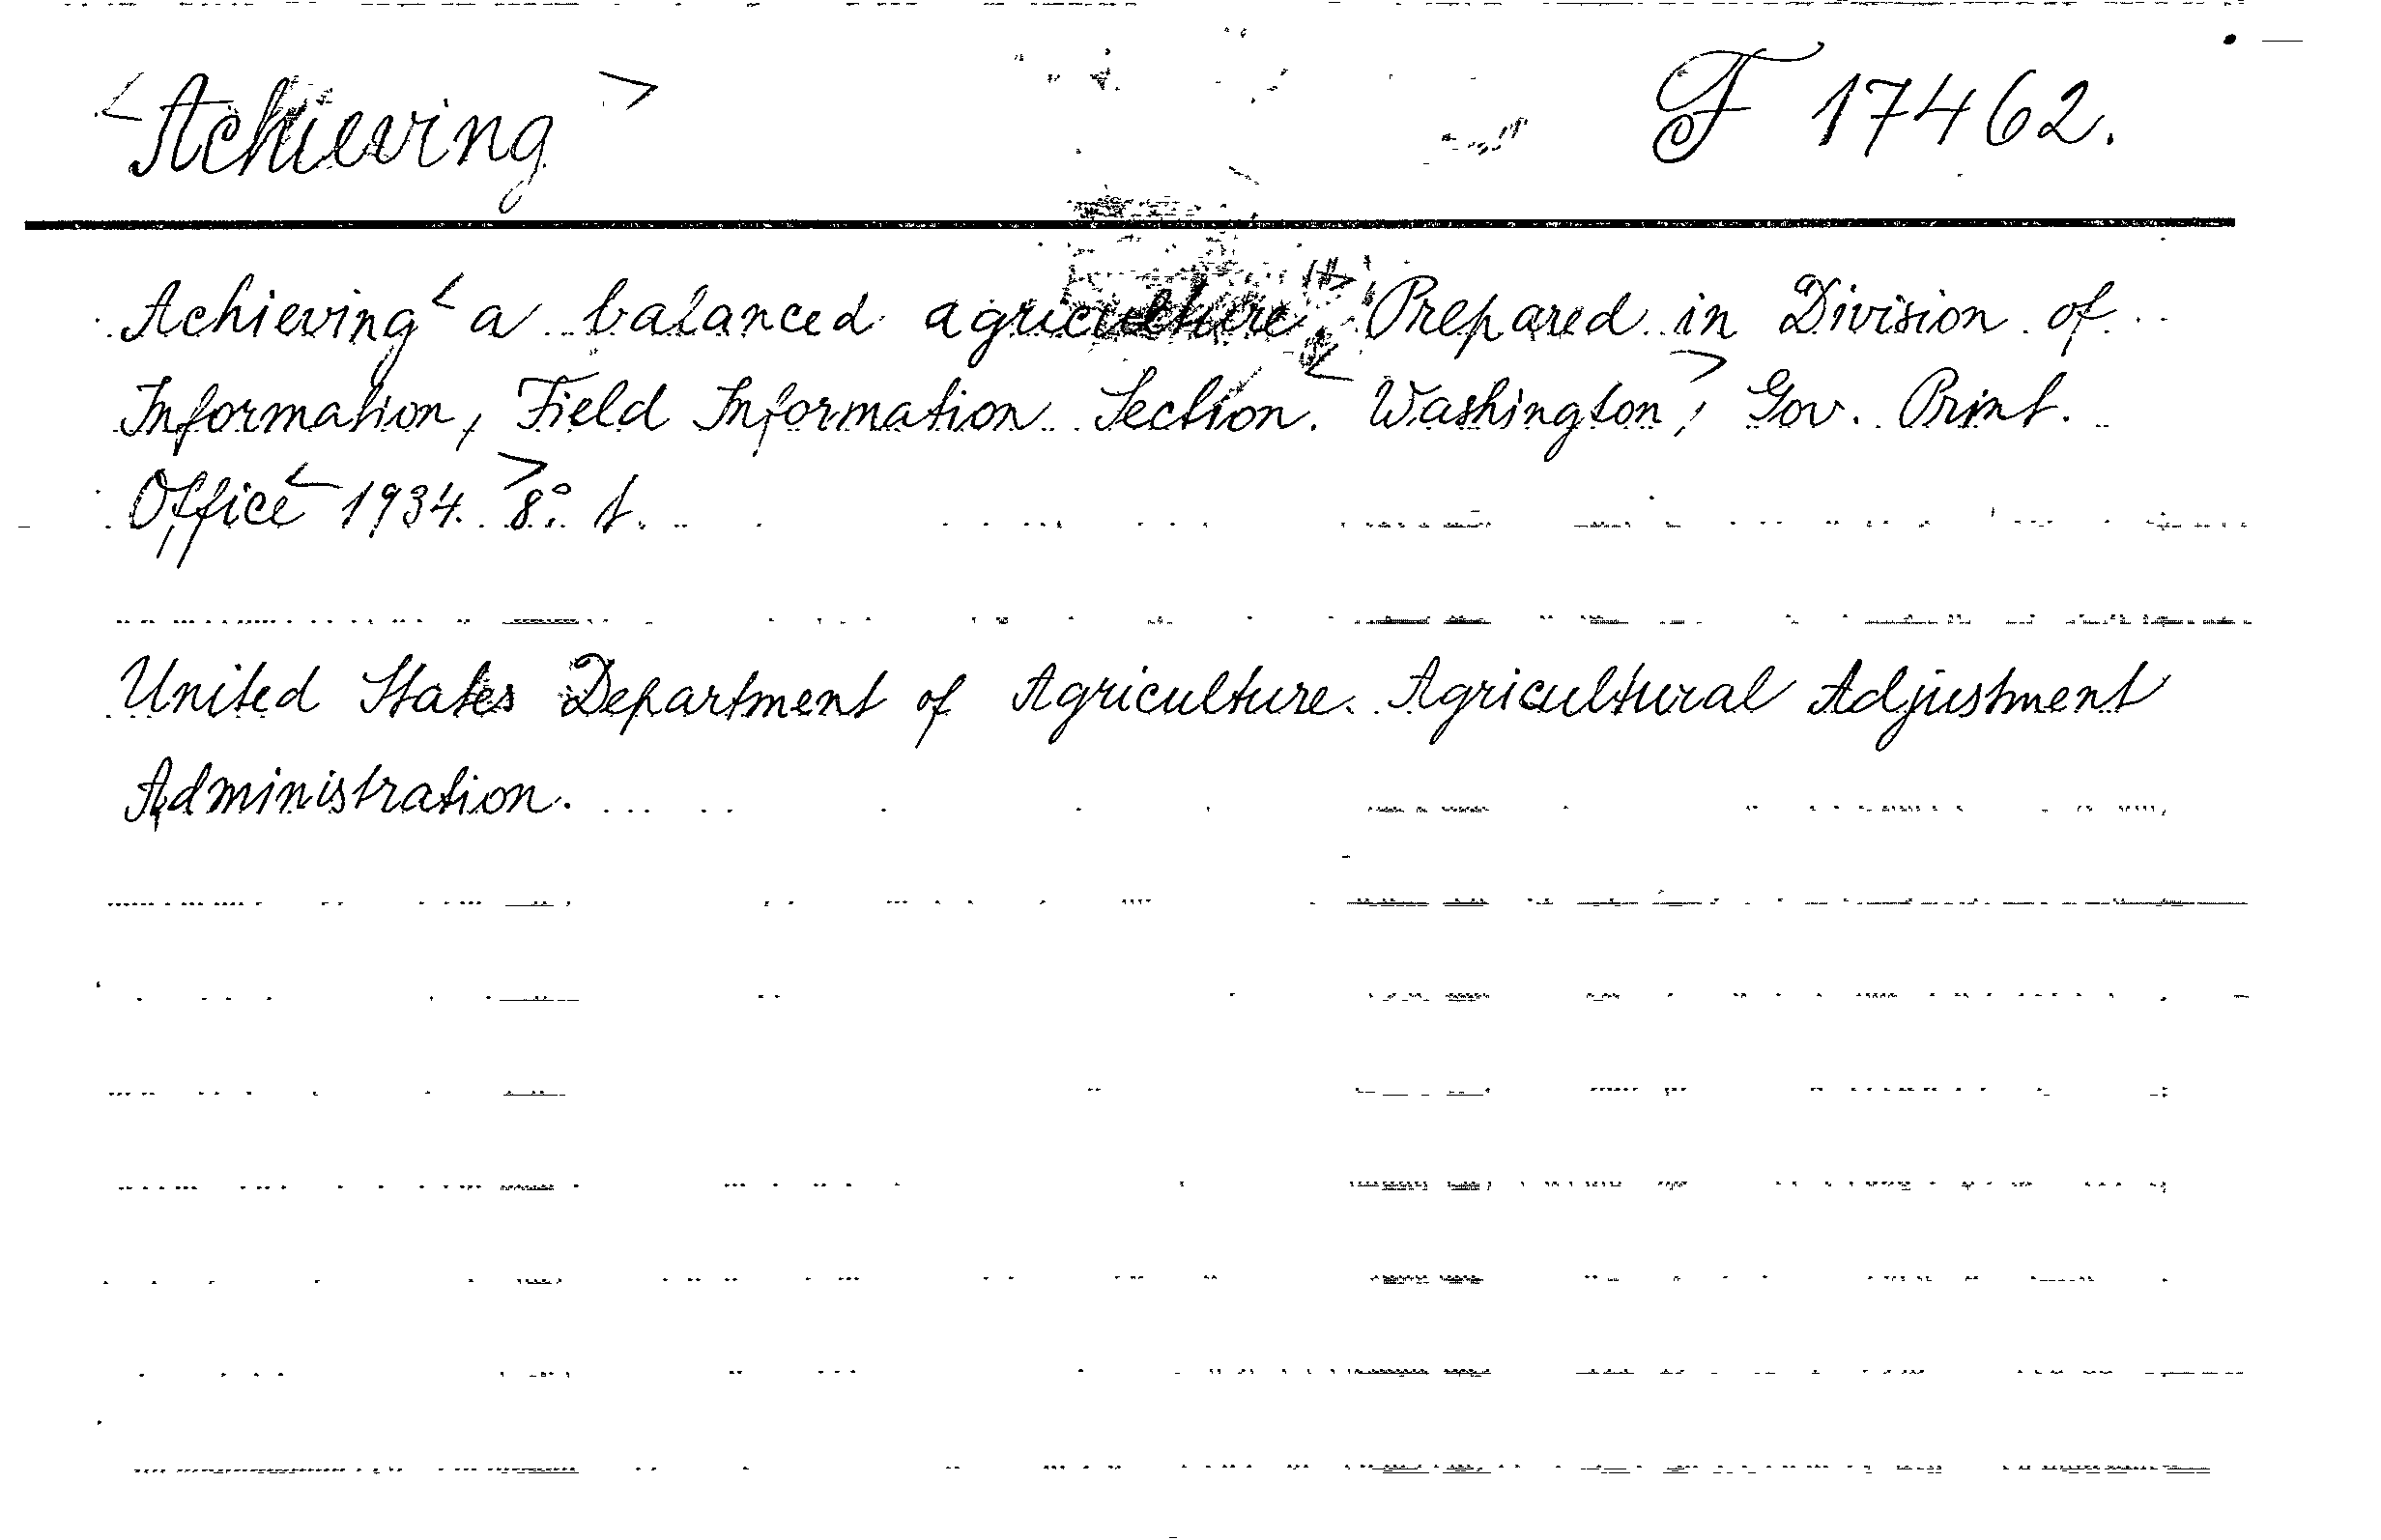 <Achieving> F 17462.
Achieving < a balanced agriculture.> Prepared in Division of
Information, Field Information Section. < Washington >, Gov. Print.
Office < 1934. > 8° t.
United States Department of Agriculture. Agricultural Adjustment
Administration.